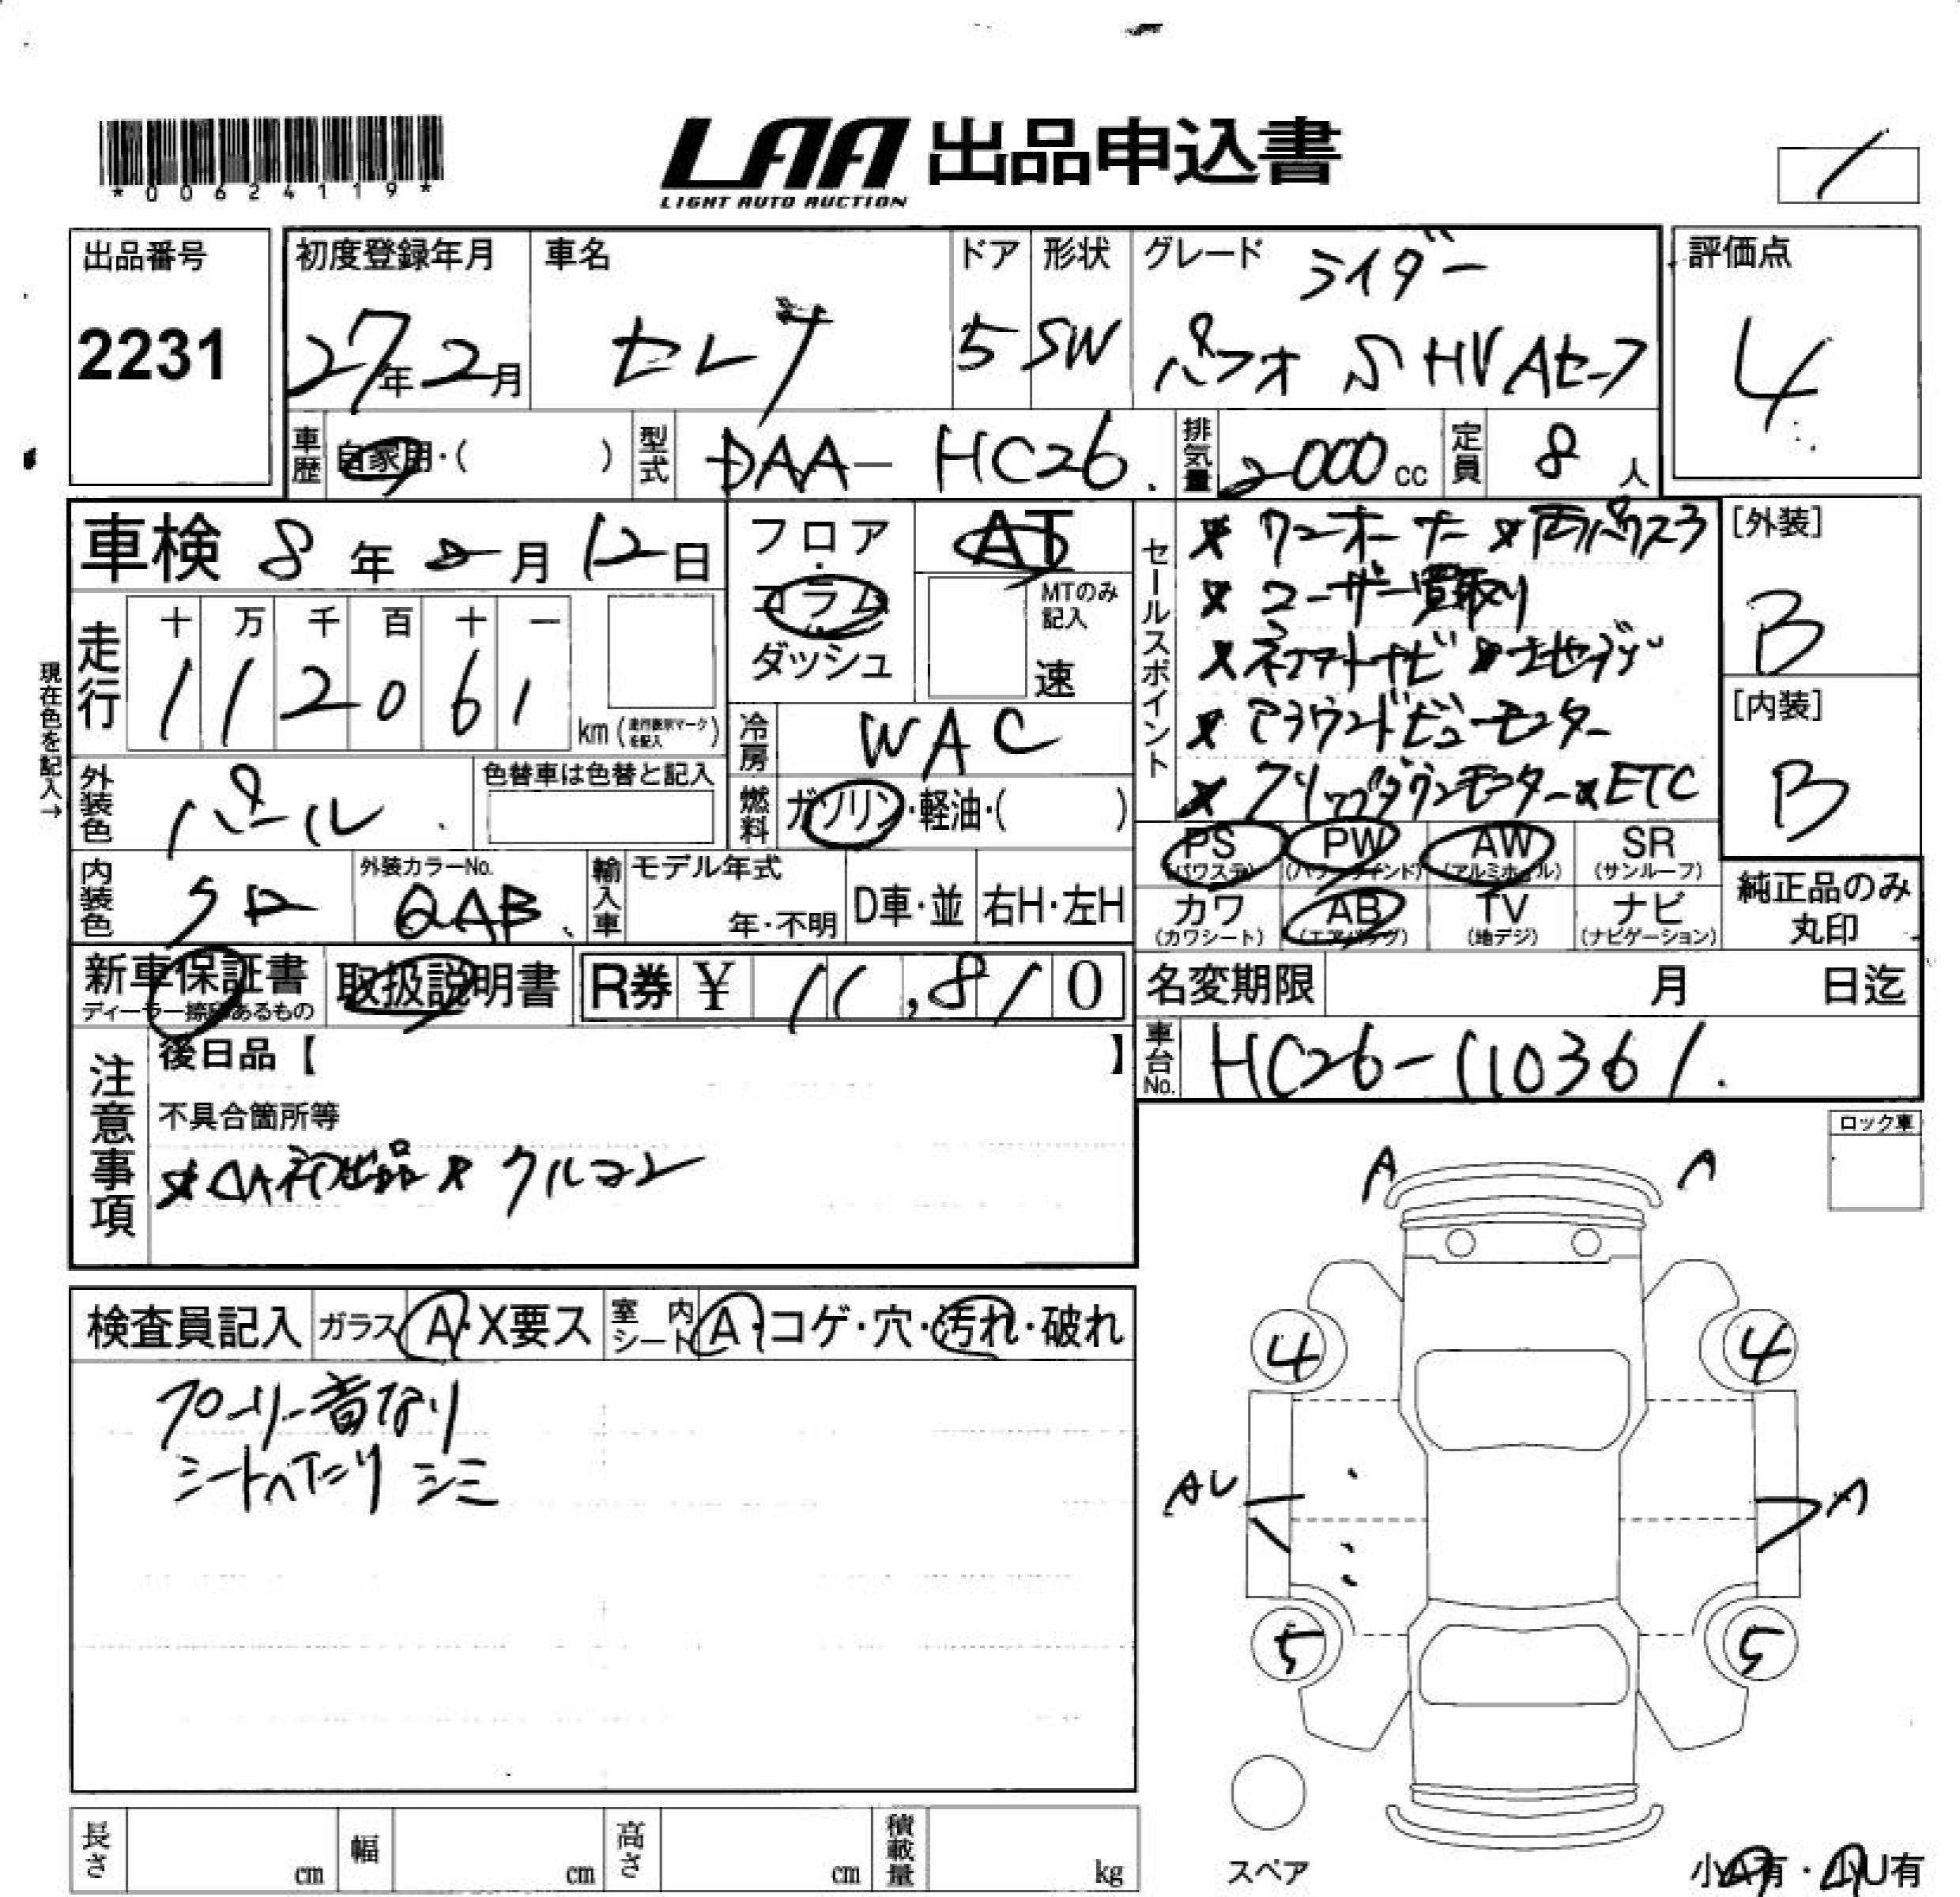 *00624119*
LAA 出品申込書
LIGHT AUTO AUCTION
出品番号
2231
初度登録年月
27年2月
車名
セレナ
ドア
5
形状
SW
グレード
ライダー
パフォ S HV Aセーフ
評価点
4
車歴 自家用・( )
型式 DAA-HC26
排気量 2000cc
定員 8人
車検 8年2月12日
フロア・コラム・ダッシュ
AT
MTのみ記入
速
セールスポイント
*ワンオーナー *両パワスラ
*ユーザー買取り
*コネクトナビ *地デジ
*アラウンドビューモニター
*フリップダウンモニター *ETC
[外装]
B
[内装]
B
現在色を記入→
走行 十 万 千 百 十 一
112061
km(走行表示マークを記入)
冷房 WAC
外装色 パール
色替車は色替と記入
燃料 ガソリン・軽油・( )
PS (パワステ)
PW (パワーウインド)
AW (アルミホイル)
SR (サンルーフ)
カワ (カワシート)
AB (エアバッグ)
TV (地デジ)
ナビ (ナビゲーション)
純正品のみ丸印
内装色 クロ
外装カラーNo. QAB
輸入車
モデル年式
年・不明
D車・並
右H・左H
新車保証書
ディーラー捺印あるもの
取扱説明書
R券 ¥ 11,810
名変期限 月 日迄
車台No. HC26-110361
注意事項
後日品【 】
不具合箇所等
初出品 * クルコン
ロック車
A A
4 4
AU A
5 5
検査員記入
ガラス A・X要ス
室内シート A・コゲ・穴・汚れ・破れ
プーリー音なり
シートヘタリ シミ
長さ cm
幅 cm
高さ cm
積載量 kg
スペア
小A有・小U有